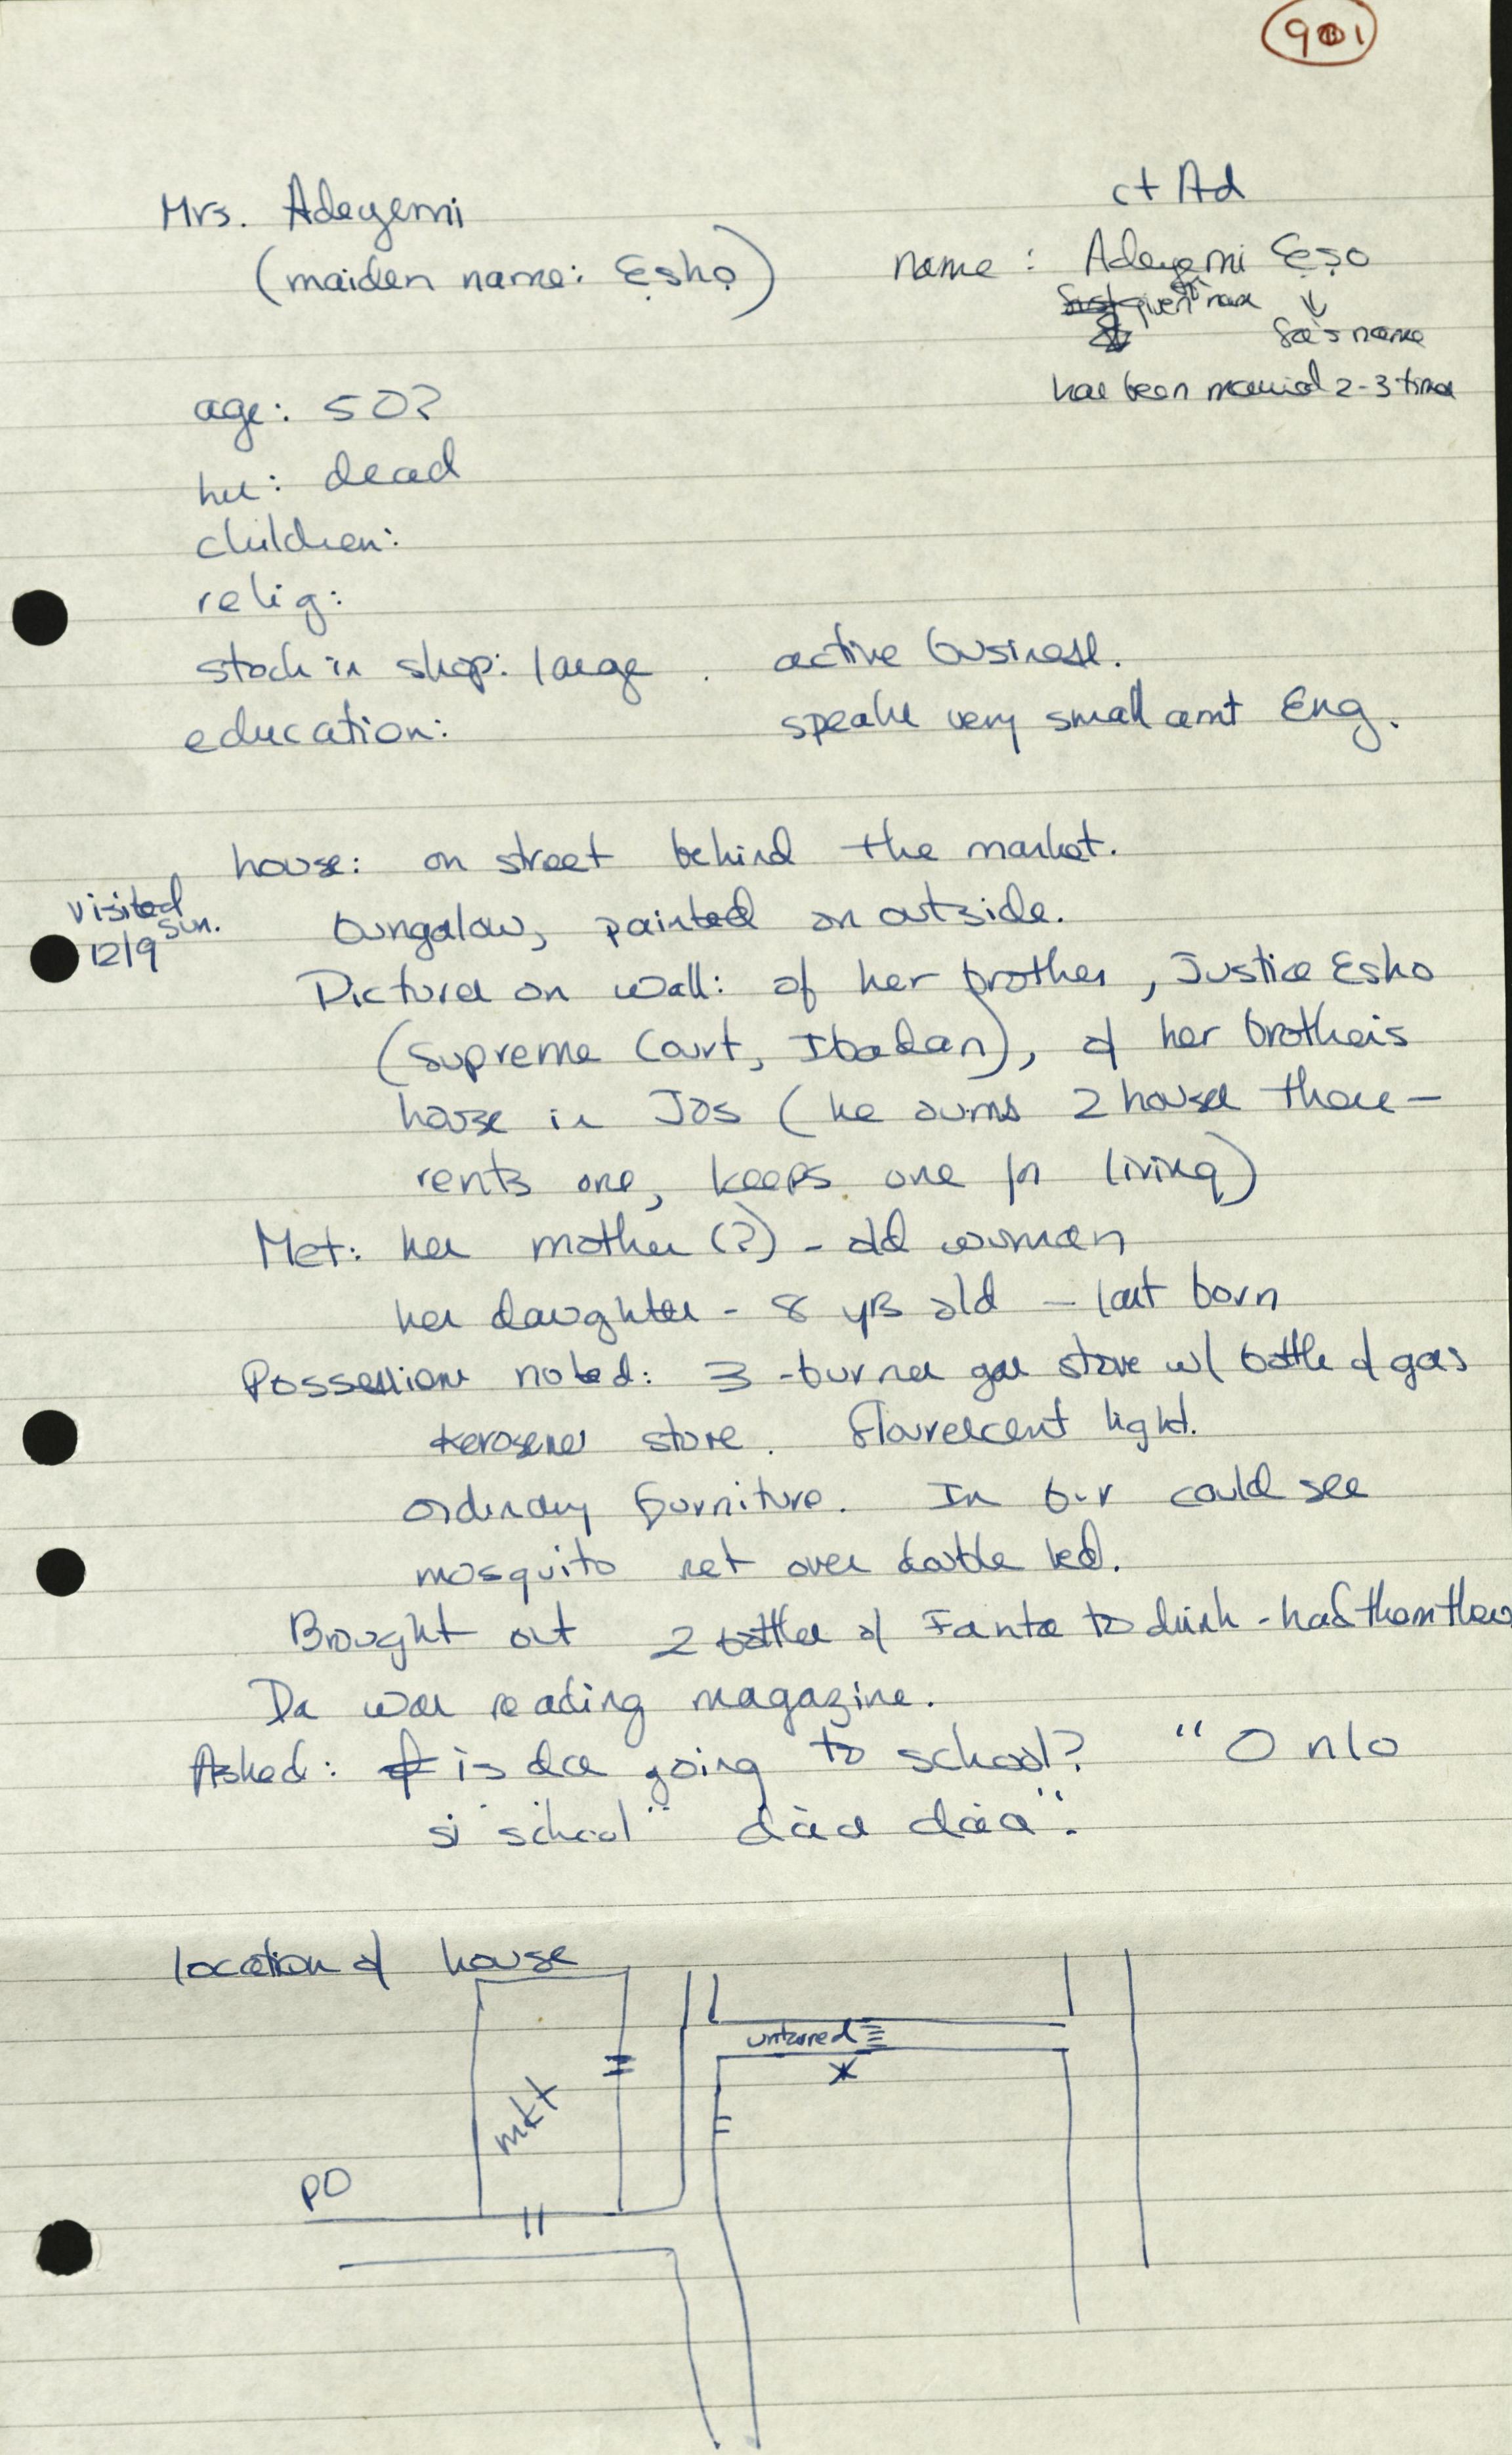 901
ct Ad
Mrs. Adeyemi
(maiden name: Ẹshọ)
name: Adeyemi Ẹṣọ
given name
fa's name
has been married 2-3 times
age: 50?
hu: dead
children:
relig:
stock in shop: large. active business.
education: speaks very small amt Eng.
house: on street behind the market.
visited Sun. 12/9
bungalow, painted on outside.
Pictures on wall: of her brother, Justice Esho
(Supreme Court, Ibadan), of her brother's
house in Jos (he owns 2 houses there –
rents one, keeps one for living)
Met: her mother (?) - old woman
her daughter - 8 yrs old – last born
Possessions noted: 3-burner gas stove w/ bottle of gas
kerosene stove. Flourescent light.
ordinary furniture. In b-r could see
mosquito net over double bed.
Brought out 2 bottles of Fanta to drink - had them there
Da was reading magazine.
Asked: is da going to school? "O nlo
si "school" dáa dáa".
location of house
untarred
mkt
PO